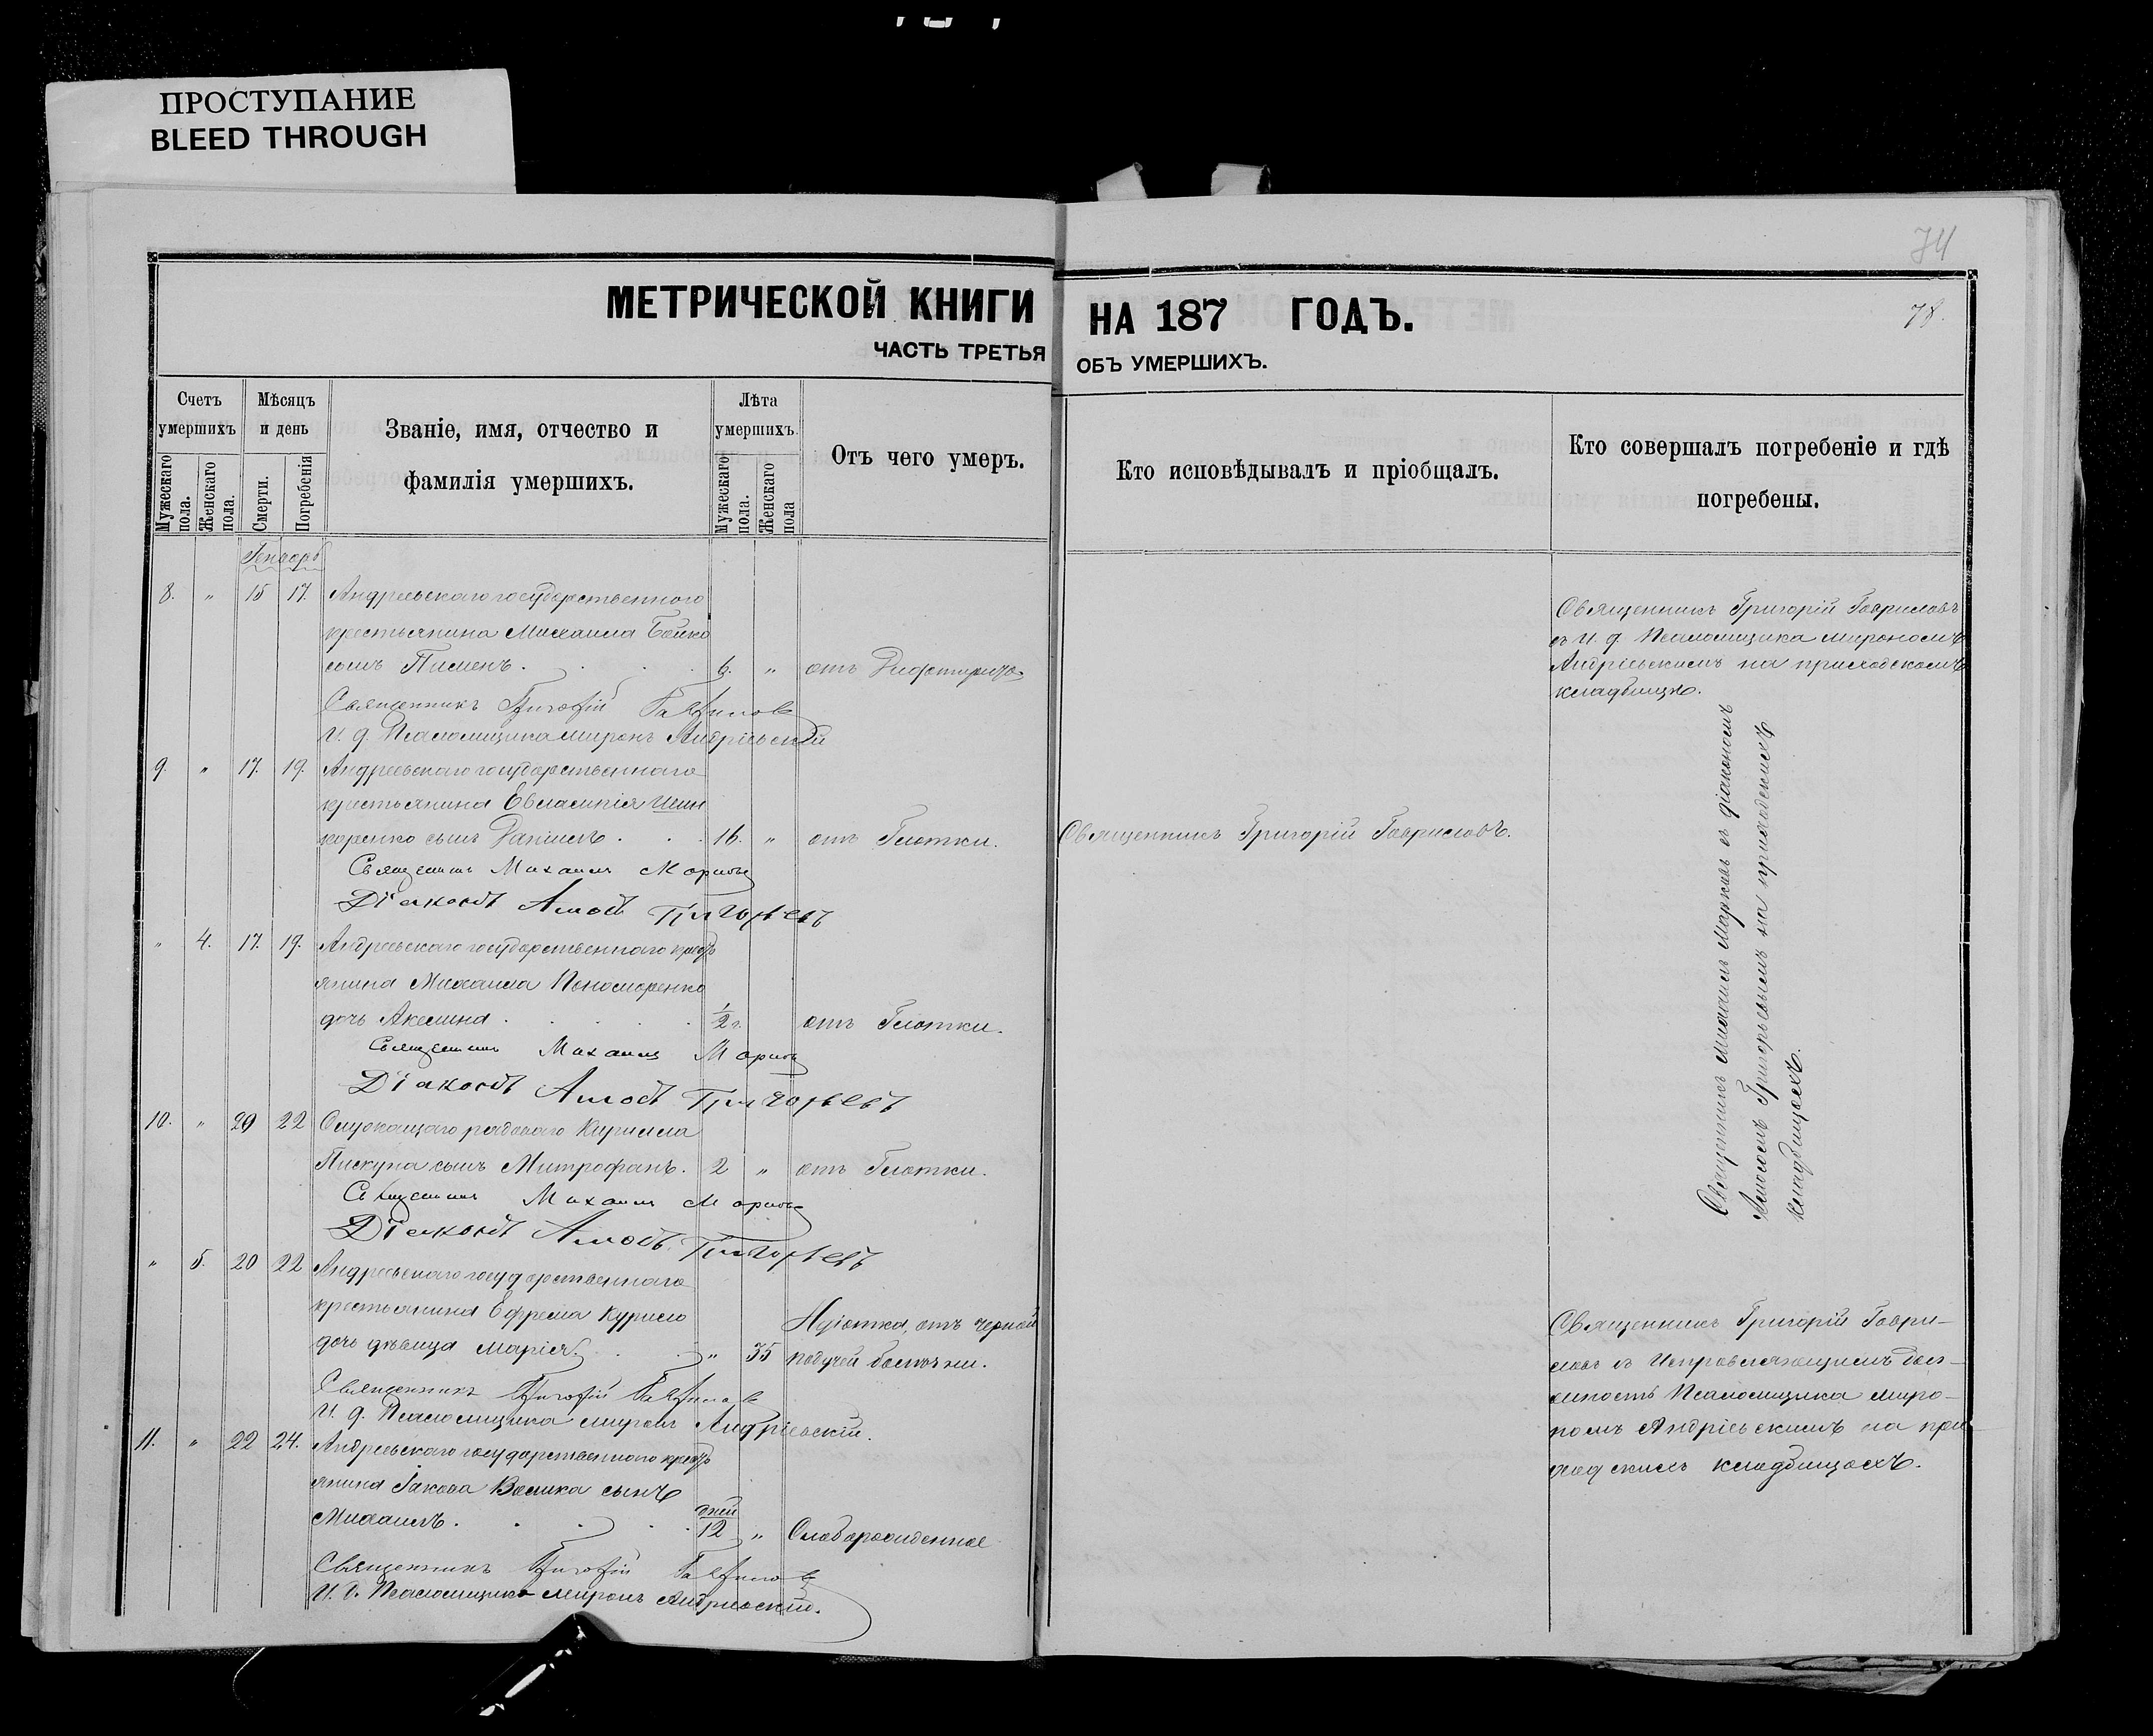 ПРОСТУПАНИЕ
BLEED THROUGH
74
МЕТРИЧЕСКОЙ КНИГИ НА 187 ГОДЪ.
78.
ЧАСТЬ ТРЕТЬЯ ОБЪ УМЕРШИХЪ.
Счетъ умершихъ
Мужескаго пола.
Женскаго пола.
Мѣсяцъ и день
Смерти.
Погребенія
Званіе, имя, отчество и фамилія умершихъ.
Лѣта умершихъ.
Мужескаго пола.
Женскаго пола
Отъ чего умеръ.
Кто исповѣдывалъ и пріобщалъ.
Кто совершалъ погребеніе и гдѣ погребены.
Генваръ
8. " 15 17. Андреевскаго государственного
крестьянина Михаила Бойко
сынъ Пименъ. 6. " отъ Дифтерита
Священникъ Григорій Гавриловъ
съ И. д. Псаломщика Мирономъ
Андріевскимъ на приходскомъ
кладбищѣ.
Священникъ Григорій Гавриловъ
И. д. Псаломщика Миронъ Андріевскій
9. " 17. 19. Андреевскаго государственнаго
крестьянина Евлампія Шин
коренко сынъ Даніилъ. 16. " отъ Глотки. Священникъ Григорій Гавриловъ.
Священникъ Михаилъ
Діаконъ Григорьевъ
" 4. 17. 19. Андреевскаго государственнаго крестъ
янина Михаила Пономаренко
дочь Акелина. 1/2 г. отъ Глотки.
Священникъ Михаилъ
Діаконъ Григорьевъ
Священникъ Михаилъ съ діакономъ
Григорьевымъ на приходскихъ
кладбищахъ.
10. " 20 22 рядового Кирилла
Пискуна сынъ Митрофанъ. 2 " отъ Глотки.
Священникъ Михаилъ
Діаконъ Григорьевъ
" 5. 20 22 Андреевскаго государственнаго
крестьянина Ефрема Курило
дочь дѣвица Марія. " 35 Идіотка, отъ черной
падучей болѣзни.
Священникъ Григорій Гаври-
ловъ съ Исправляющимъ дол-
жность Псаломщика Миро-
номъ Андріевскимъ на при
ходскихъ кладбищахъ.
Священникъ Григорій Гавриловъ
И. д. Псаломщика Миронъ Андріевскій.
11. " 22 24. Андреевскаго государственного крестъ
янина Іакова Волика сынъ
Михаилъ. дней 12 " Слаборожденное
Священникъ Григорій Гавриловъ
И. д. Псаломщика Миронъ Андріевскій.